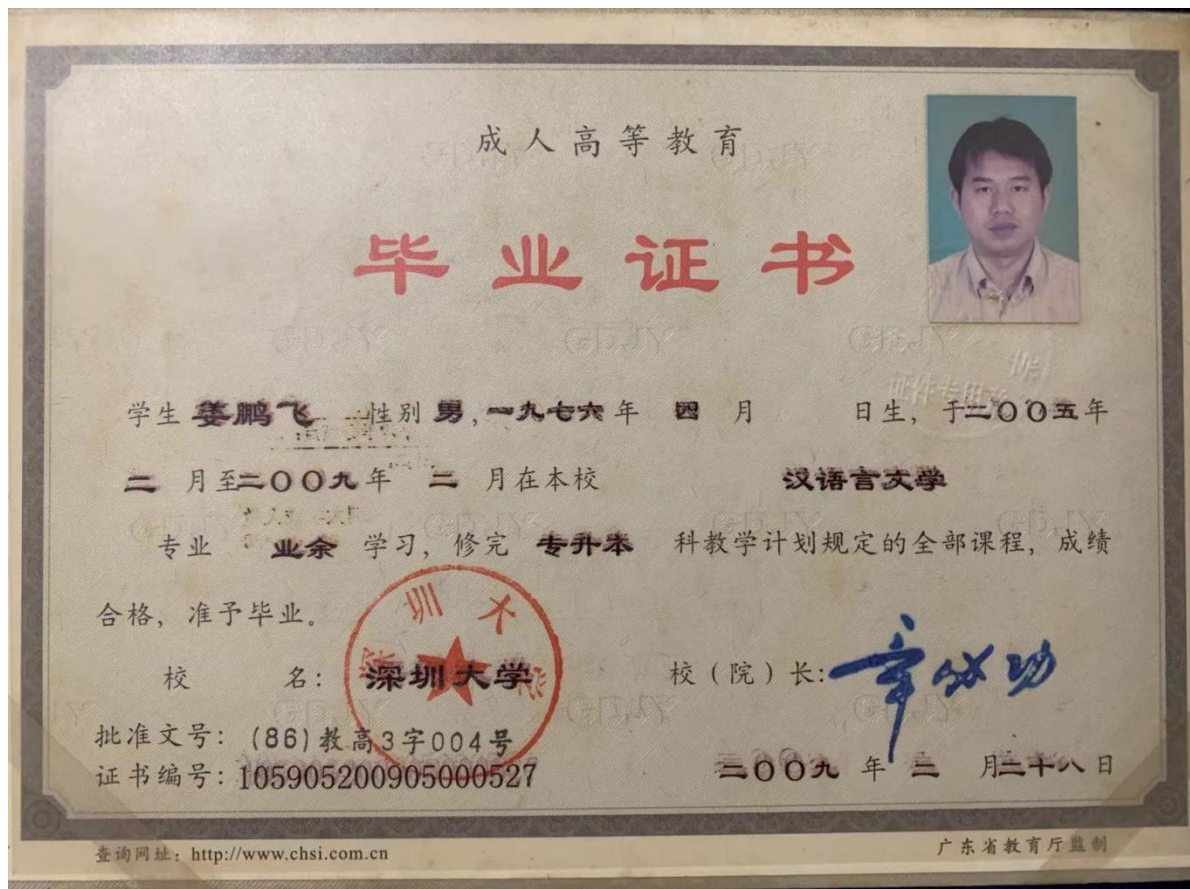 成人高等教育
毕业证书
证件专用章
学生 姜鹏飞 性别 男，一九七六年 四 月 日生，于二〇〇五年
二 月至二〇〇九年 二 月在本校 汉语言文学
专业 业余 学习，修完 专升本 科教学计划规定的全部课程，成绩
合格，准予毕业。
校 名：深圳大学 校（院）长：章必功
深圳大学
批准文号：(86)教高3字004号
证书编号：105905200905000527 二〇〇九 年 二 月二十八日
查询网址：http://www.chsi.com.cn 广东省教育厅监制